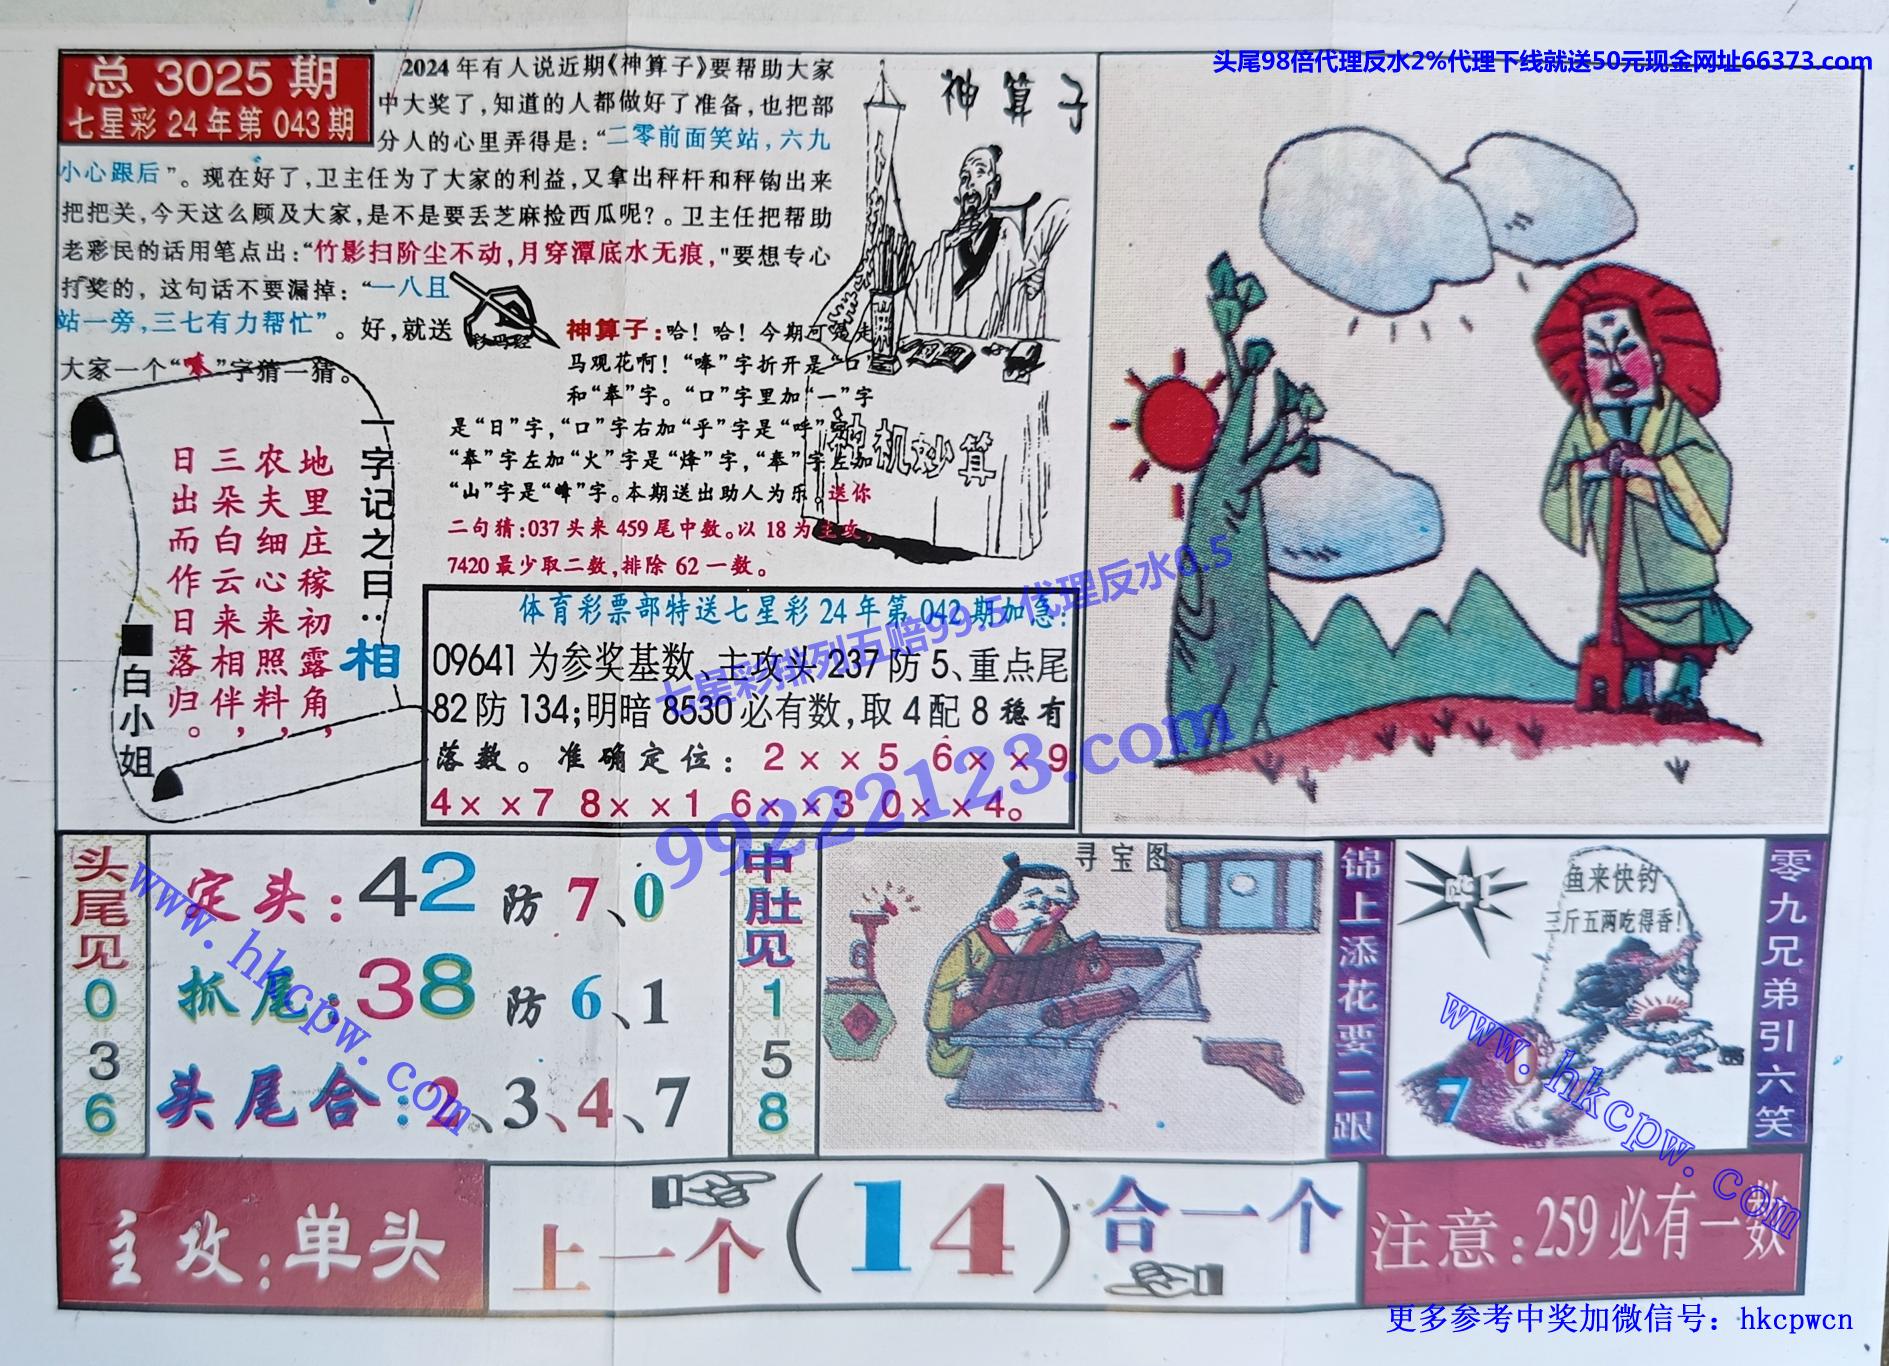 头尾98倍代理反水2%代理下线就送50元现金网址66373.com
总 3025 期
七星彩 24 年第 043 期
2024 年有人说近期《神算子》要帮助大家
中大奖了，知道的人都做好了准备，也把部
分人的心里弄得是：“二零前面笑站，六九
小心跟后”。现在好了，卫主任为了大家的利益，又拿出秤杆和秤钩出来
把把关，今天这么顾及大家，是不是要丢芝麻捡西瓜呢？。卫主任把帮助
老彩民的话用笔点出：“竹影扫阶尘不动，月穿潭底水无痕，"要想专心
打奖的，这句话不要漏掉：“一八且
站一旁，三七有力帮忙”。好，就送
大家一个“唪”字猜一猜。
神算子
神机妙算
神算子：哈！哈！今期可是走
马观花啊！“唪”字折开是“口”
和“奉”字。“口”字里加“一”字
是“日”字，“口”字右加“乎”字是“呼”字，
“奉”字左加“火”字是“烽”字，“奉”字左加
“山”字是“峰”字。本期送出助人为乐。送你
二句猜：037 头来 459 尾中数。以 18 为主攻，
7420 最少取二数，排除 62 一数。
一字记之曰：相
地里庄稼初露角，
农夫细心来照料，
三朵白云来相伴，
日出而作日落归。
■白小姐
体育彩票部特送七星彩 24 年第 042 期加急：
09641 为参奖基数、主攻头 237 防 5、重点尾
82 防 134；明暗 8530 必有数，取 4 配 8 稳有
落数。准确定位：2××5 6××9
4××7 8××1 6××3 0××4。
七星彩排列五赔99.5 代理反水0.5
99222123.com
头尾见036
定头：42 防 7、0
抓尾：38 防 6、1
头尾合：2、3、4、7
中肚见158
寻宝图
锦上添花要二跟
鱼来快钓
三斤五两吃得香！
7
零九兄弟引六笑
www.hkcpw.com
www.hkcpw.com
主攻：单头
上一个（14）合一个
注意：259 必有一数
更多参考中奖加微信号：hkcpwcn